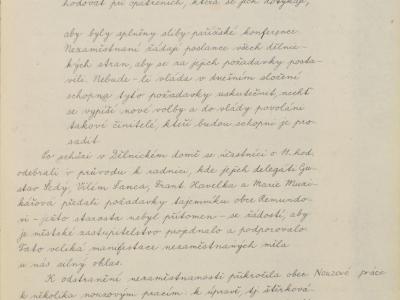 hodovat při opatřeních, která se jich dotýkají,
aby byly splněny sliby pařížské konference.
Nezaměstnaní žádají poslance všech dělnic-
kých stran, aby se za jejich požadavky posta-
vili. Nebude-li vláda v dnešním složení
schopna tyto požadavky uskutečnit, nechť
se vypíší nové volby a do vlády povoláni
takoví činitelé, kteří budou schopni je pro-
sadit.
Po schůzi v Dělnickém domě se účastníci o 11. hod.
odebrali v průvodu k radnici, kde jejich delegáti Gu-
stav Šedý, Vilém Šanca, Frant. Havelka a Marie
předali požadavky tajemníku obce Remundo-
vi - ježto starosta nebyl přítomen - se žádostí, aby
je městské zastupitelstvo projednalo a podporovalo.
Tato veliká manifestace nezaměstnaných měla
u nás silný ohlas.
K odstranění nezaměstnanosti přikročila obec Nouzové práce
k několika nouzovým pracím: k úpravě, tj. štěrková-